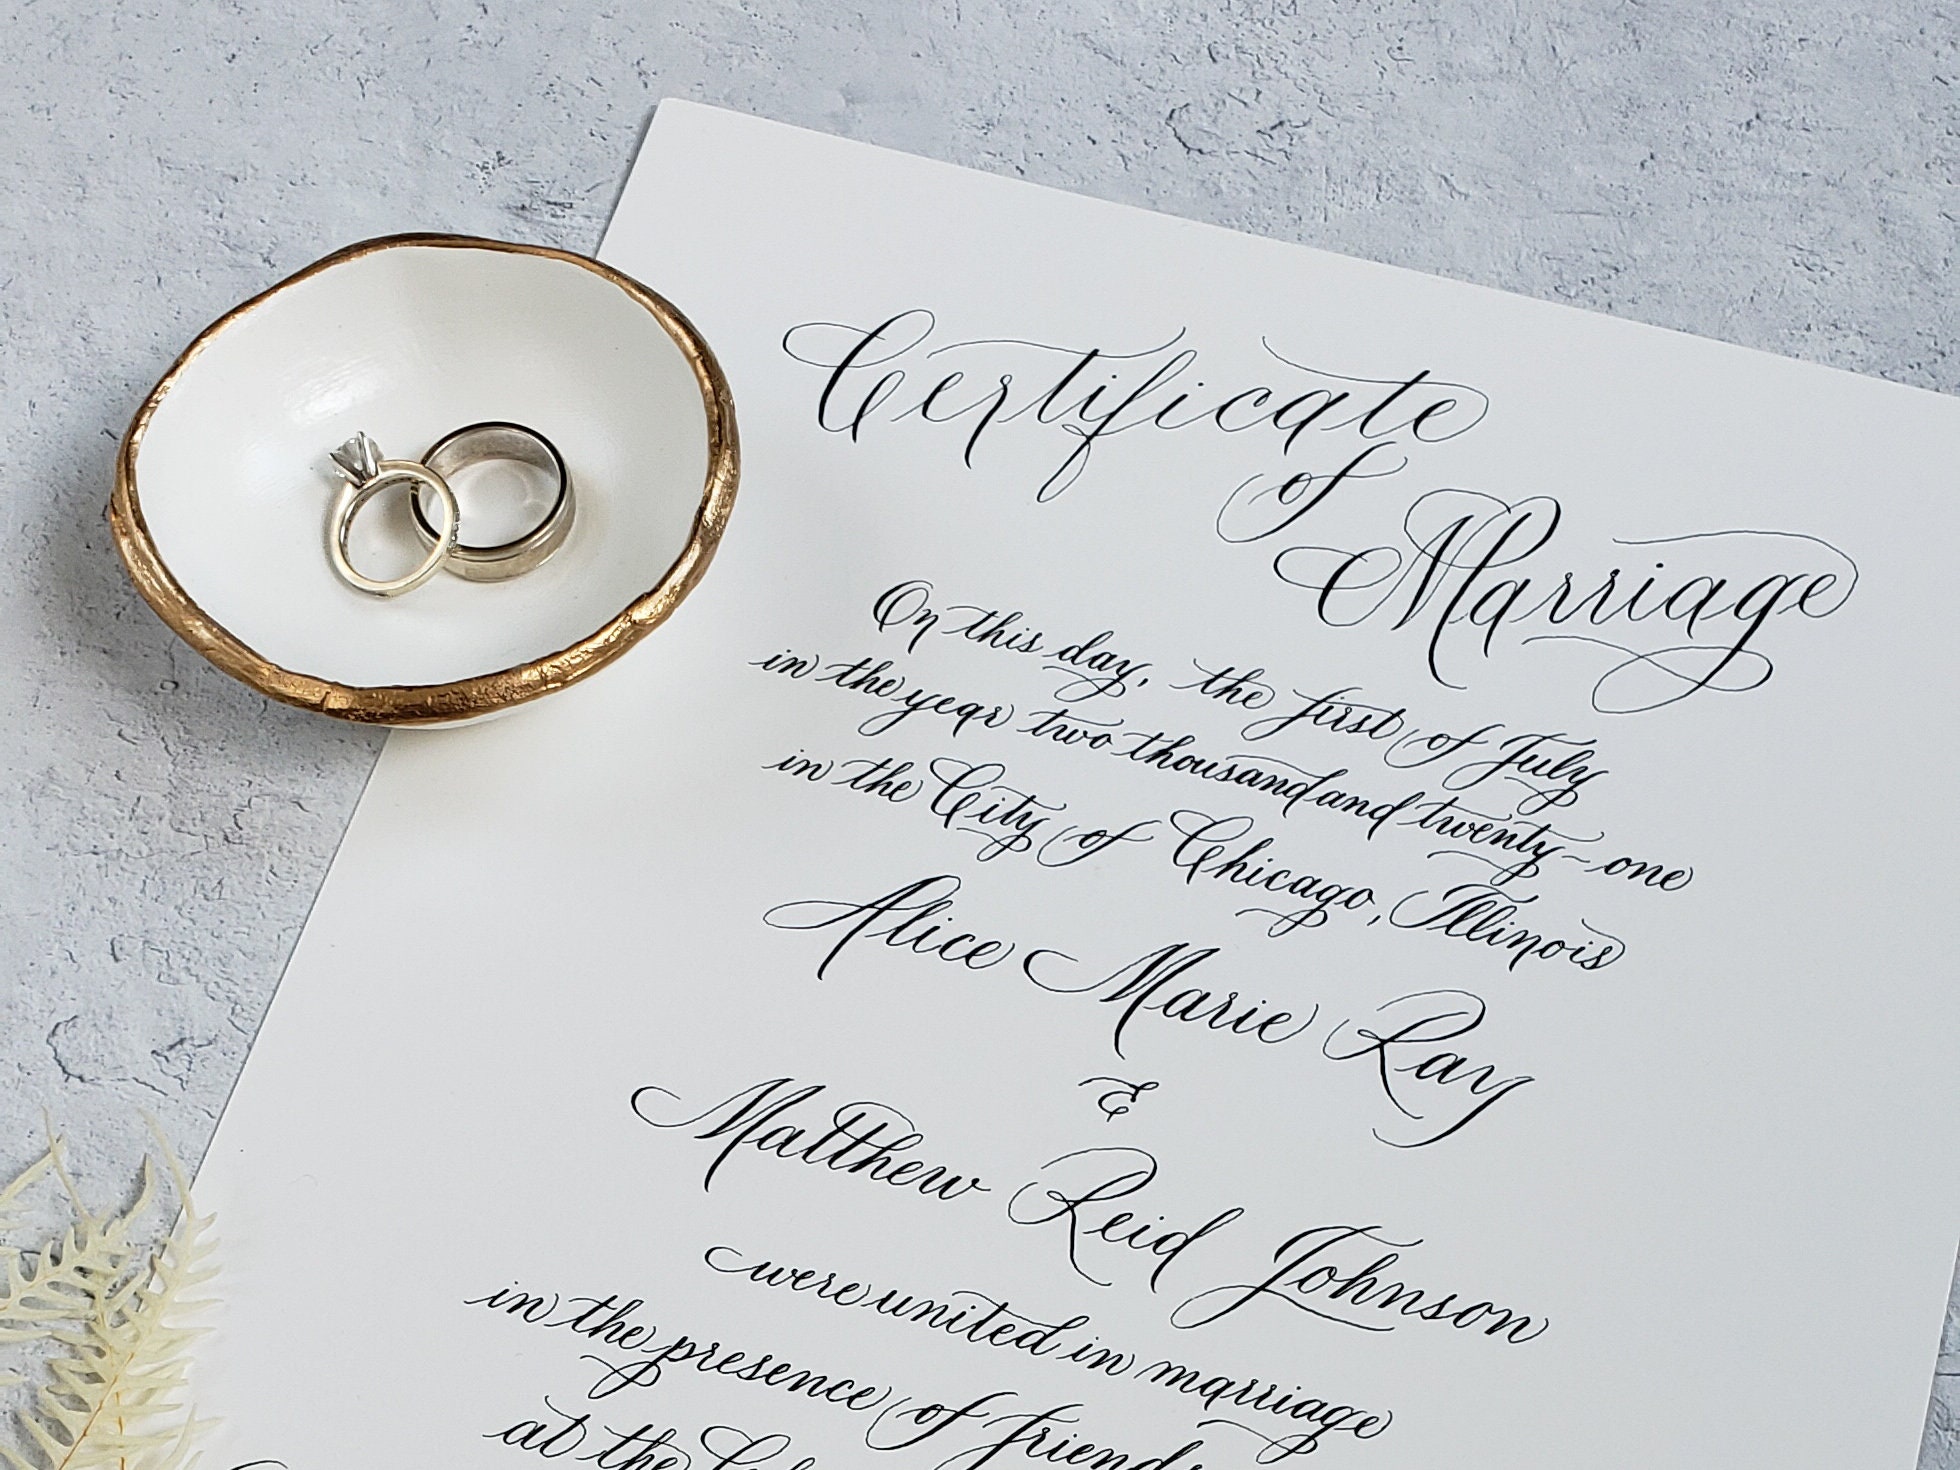 Certificate
of
Marriage
On this day, the first of July
in the year two thousand and twenty-one
in the City of Chicago, Illinois
Alice Marie Ray
&
Matthew Reid Johnson
were united in marriage
in the presence of friends
at the